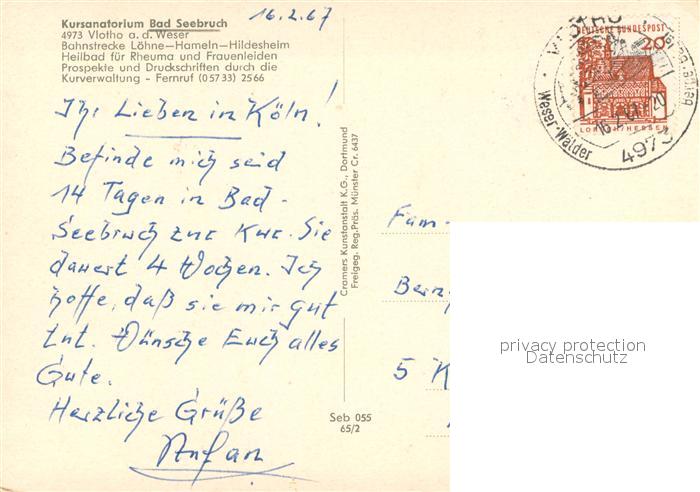 16.2.67
Kursanatorium Bad Seebruch
4973 Vlotho a. d. Weser
Bahnstrecke Löhne-Hameln-Hildesheim
Heilbad für Rheuma und Frauenleiden
Prospekte und Druckschriften durch die
Kurverwaltung - Fernruf (05733) 2566
Ihr Lieben in Köln!
Befinde mich seid
14 Tagen in Bad-
Seebruch zur Kur. Sie
dauert 4 Wochen. Ich
hoffe, daß sie mir gut
tut. Wünsche Euch alles
Gute.
Herzliche Grüße
Cramers Kunstanstalt K.G., Dortmund
Freigeg. Reg.Präs. Münster Cr. 6437
Seb 055
65/2
DEUTSCHE BUNDESPOST
20
LORSCH/HESSEN
VLOTHO
16.2.67
Weser-Wälder
4973
Fam.
5 K
privacy protection
Datenschutz